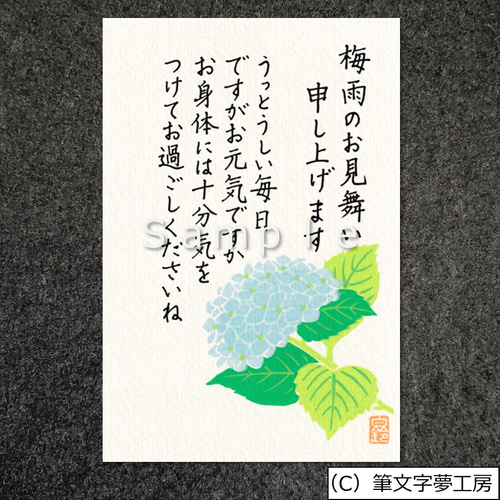 梅雨のお見舞い
申し上げます
うっとうしい毎日
ですがお元気ですか
お身体には十分気を
つけてお過ごしくださいね
Sample
(C) 筆文字夢工房